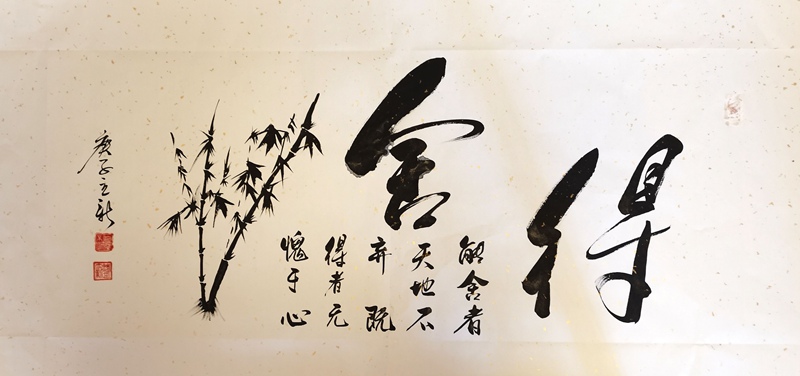 得舍
能舍者
天地不
弃既
得者无
愧于心
庚子立新